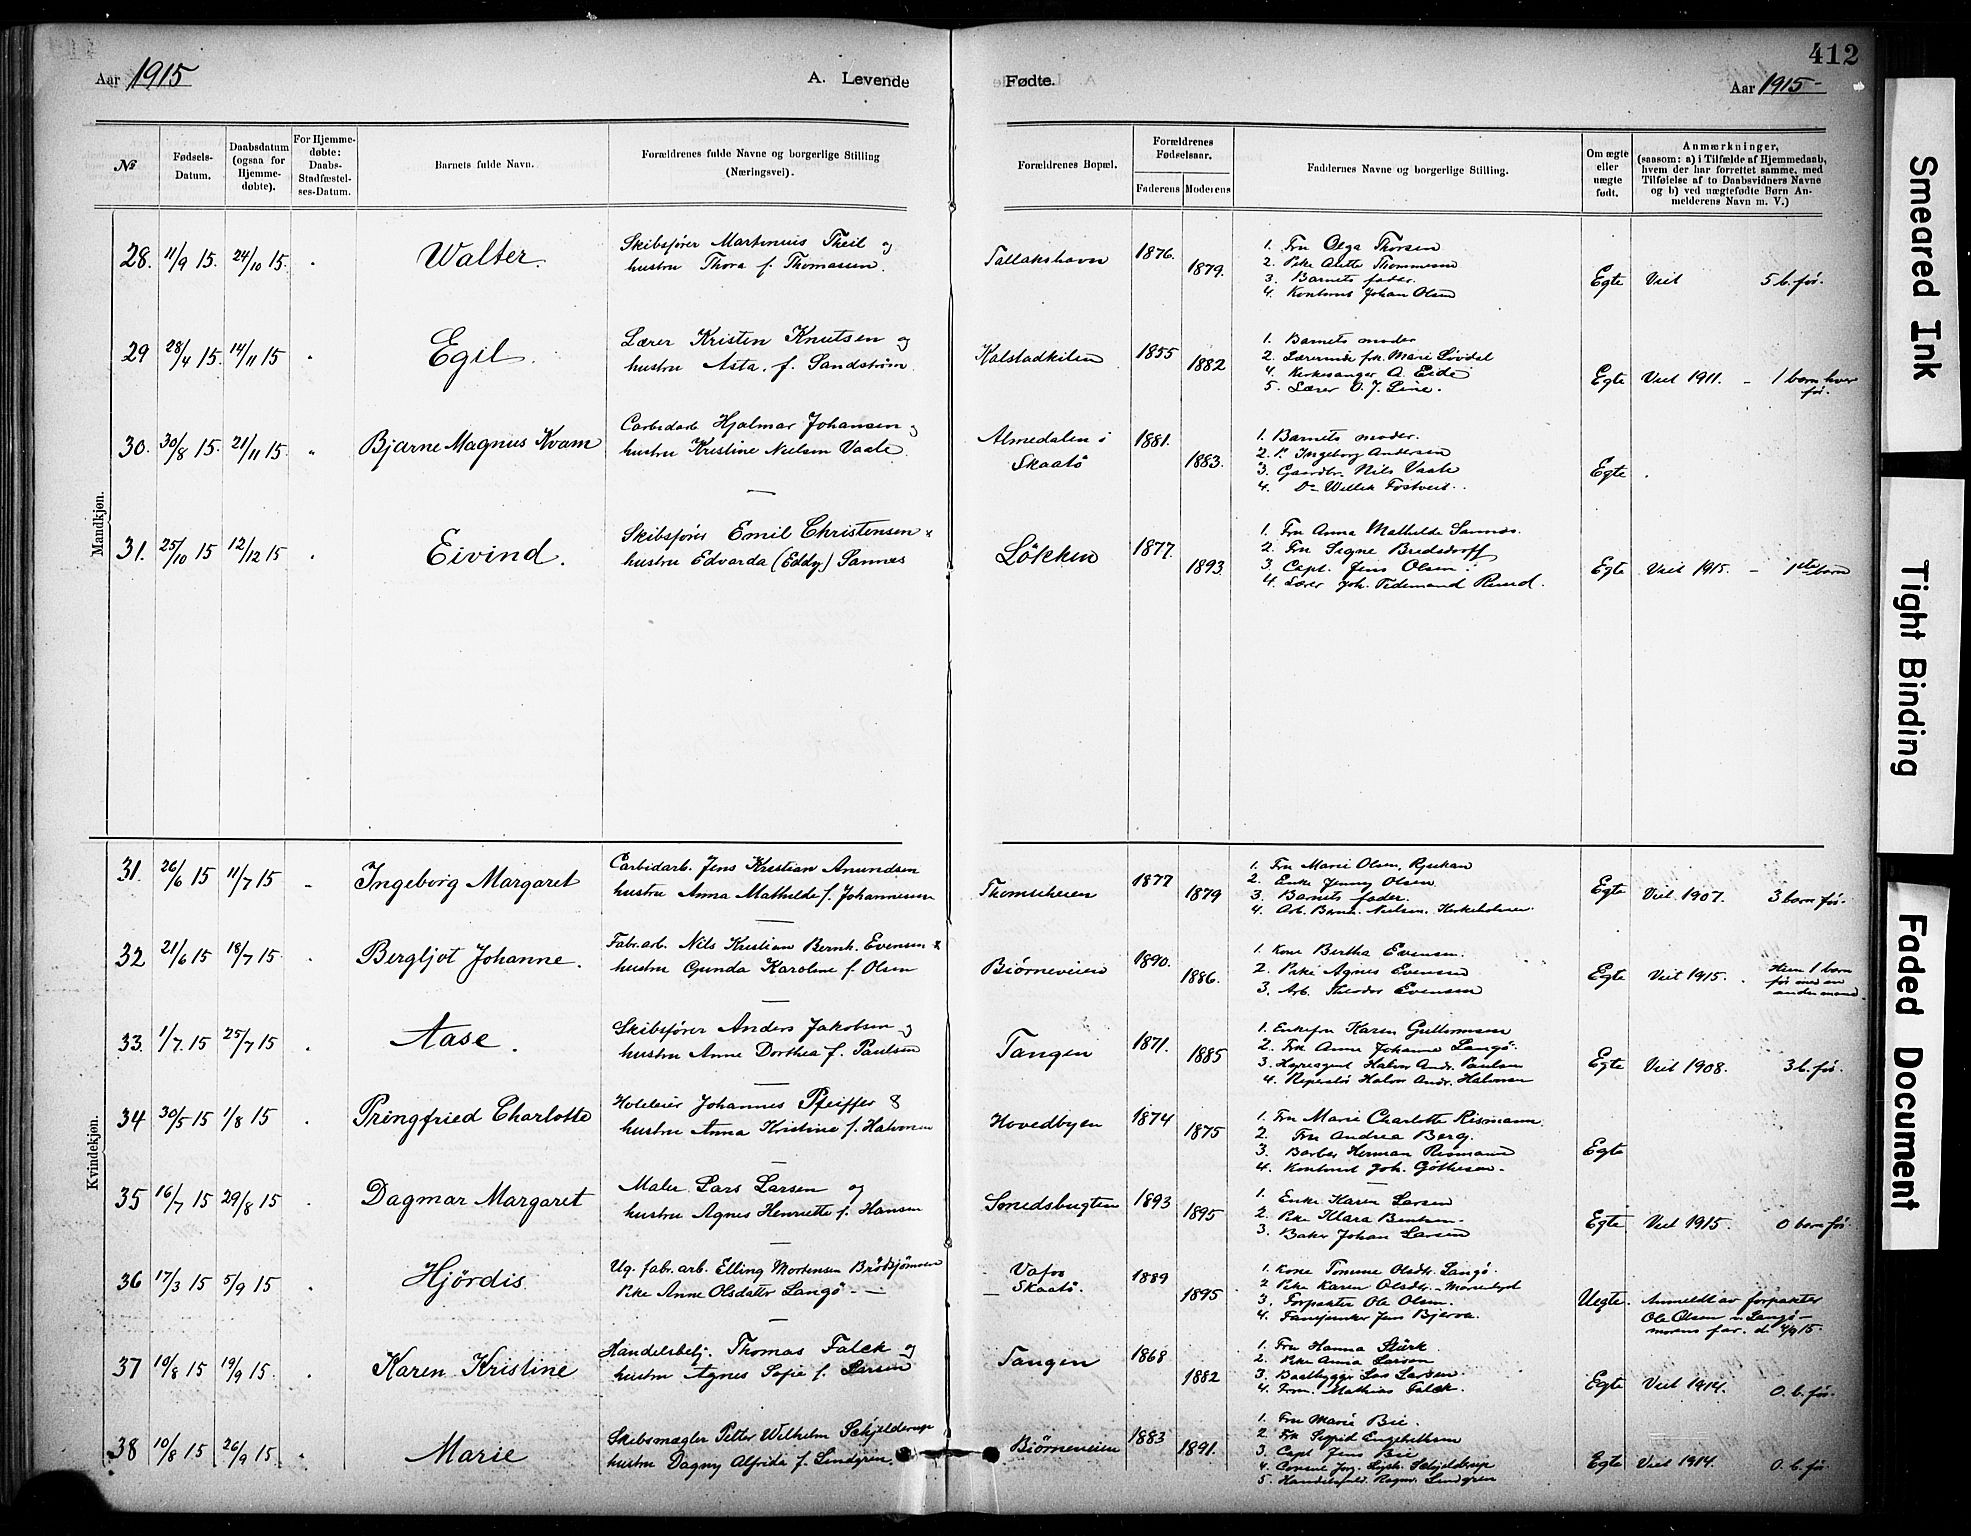 412
Aar 1915
A. Levende
Fødte.
Aar 1915
№
Fødsels-
Datum.
Daabsdatum
(ogsaa for
Hjemme-
døbte).
For Hjemme-
døbte:
Daabs-
Stadfæstel-
ses-Datum.
Barnets fulde Navn.
Forældrenes fulde Navne og borgerlige Stilling
(Næringsvei).
Forældrenes Bopæl.
Forældrenes
Fødselsaar.
Faderens Moderens
Faddernes Navne og borgerlige Stilling.
Om ægte
eller
nægte
født.
Anmærkninger,
(saasom: a) i Tilfælde af Hjemmedaab,
hvem der har forrettet samme, med
Tilføielse af to Daabsvidners Navne
og b) ved nægtefødte Børn An-
melderens Navn m. V.)
Mandkjøn.
28. 11/9 15. 24/10 15. Walter.
Skibsfører Martinius Theil og
hustru Thora f. Thomassen.
Tallakshavn 1876. 1879.
1. Fru Olga Thorsen
2. Pike Alette Thommesen
3. Barnets fader.
4. Johan Olsen
Egte Viet 5 b. før.
29 28/4 15. 14/11 15 Egil.
Lærer Kristen Knutsen og
hustru Asta. f. Sandstrøm.
Kalstadkilen 1855 1882
1. Barnets moder
2. Lærerinde frk. Marie Løvdal
4. Kirkesanger A. Eide
5. Lærer O. J. Line.
Egte Viet 1911. - 1 barn hver
før.
30. 30/8 15. 21/11 15. Bjarne Magnus Kvam
Carbidarb. Hjalmar Johansen og
hustru Kristine Nielsen Vaale
Almedalen i
Skaatö
1881. 1883.
1. Barnets moder.
2. P. Ingeborg Andersen
3. Gaardbr. Nils Vaale
4. Do Willik Tostveit.
Egte
31. 25/10 15 12/12 15 Eivind.
Skibsfører Emil Christensen &
hustru Edvarda (Eddy) Sannes
Lökken 1877. 1893
1. Fru Anna Mathilde Sannes.
2. Fru Signe Bredsdorff
3. Capt. Jens Olsen.
4. Lærer Joh. Tidemand Ruud.
Egte Viet 1915. - 1ste barn
Kvindekjøn.
31. 26/6 15 11/7 15 Ingeborg Margaret
Carbidarb. Jens Kristian Amundsen
hustru Anna Mathilde f. Johannesen
Thomesheien 1877 1879
1. Fru Marie Olsen, Rjukan
2. Enke Jenny Olsen
3. Barnets fader.
4. Arb. Nielsen, Kirkeholmen
Egte Viet 1907. 3 barn før.
32 21/6 15 18/7 15. Bergljot Johanne.
Fabr. arb. Nils Kristian Bernh. Evensen &
hustru Gunda Karoline f. Olsen
Biørneveien 1890. 1886.
1. Kone Bertha Evensen.
2. Pike Agnes Evensen
3. Arb. Theodor Evensen
Egte Viet 1915. Hun 1 barn
før med en
anden mand.
33. 1/7. 15 25/7 15 Aase.
Skibsfører Anders Jakobsen og
hustru Anne Dorthea f. Paulsen
Tangen 1871. 1885
1. Enkefru Karen Gullormsen
2. Frk Anne Johanne Langö.
3. Havreagent Halvor Andr. Paulsen
4. Halvor Andr. Halvorsen
Egte Viet 1908. 3 b. før.
34 30/5 15 1/8 15 Pringfried Charlotte
Hoteleier Johannes Pfeiffer &
hustru Anna Kristine f. Halvorsen
Hovedbyen 1874 1875
1. Fru Marie Charlotte Rismann.
2. Fru Andrea Berg.
3. Barber Herman Rismann
4. Joh. Gøthesen.
Egte
35 16/7 15 29/8 15 Dagmar Margaret
Maler Lars Larsen og
hustru Agnes Henriette f. Hansen
Smedsbugten 1893 1895
1. Enke Karen Larsen
2. Pike Klara Bentsen.
3. Baker Johan Larsen
Egte Viet 1915. 0 barn før.
36 17/3 15 5/9 15 Hjördis.
Ug. fabr. arb. Elling Mortensen Brödsjömoen
Pike Anne Olsdatter Langö
Vafos
Skaatö.
1889 1895
1. Kone Tomine Olsdtr. Langö.
2. Pike Karen Olsdtr. Marielyst
3. Forpakter Ole Olsen.
4. Jens Bjerva.
Uegte. Anmeldt av forpakter
Ole Olsen Langö -
morens far. d. 4/9 15.
37 10/8 15 19/9 15 Karen Kristine
Handelsbetj. Thomas Falck og
hustru Agnes Sofie f. Larsen
Tangen 1868 1882
1. Fru Hanna Stürk.
2. Pike Anna Larsen
3. Baatbygger Lars Larsen
4. Form. Mathias Falck.
Egte Viet 1914. 0. b. før.
38 10/8 15 26/9 15 Marie
Skibsmægler Peter Wilhelm Schjelderup
hustru Dagny Alfrida f. Lindgren.
Biørneveien 1883 1891.
1. Fru Marie Bie.
2. Frk Sigrid Engebretsen
3. Capt. Jens Bie
4. Consul Schjelderup
5. Ragnv. Lindgren
Egte Viet 1914. 0. b. før.
Smeared Ink
Tight Binding
Faded Document